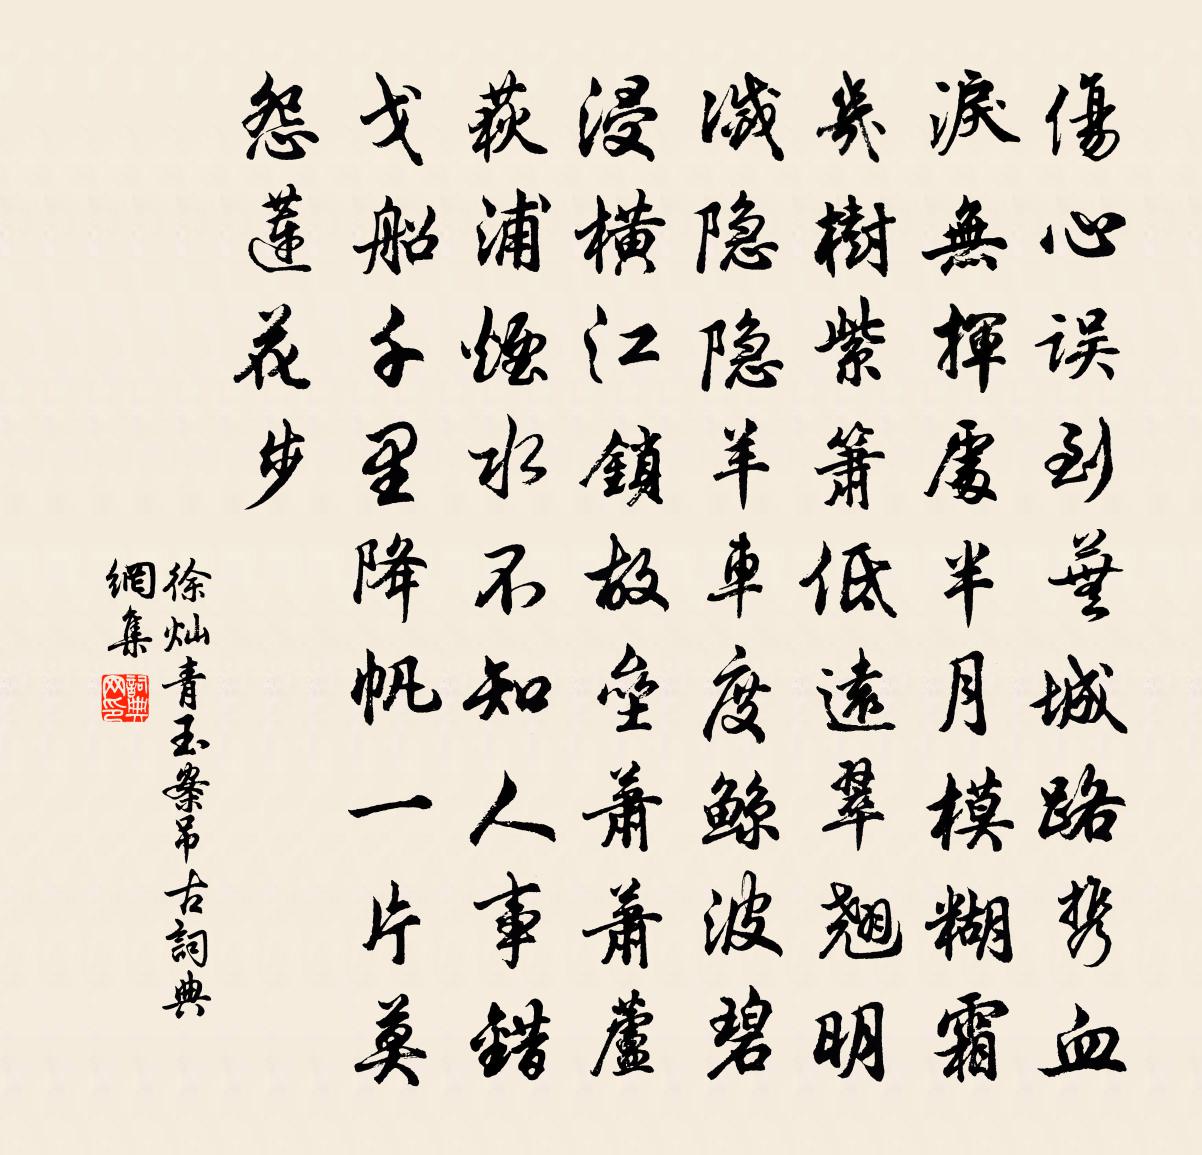 傷心误到蕪城路携血
淚無揮處半月模糊霜
幾樹紫簫低遠翠翹明
滅隐隐羊車度鯨波碧
浸橫江鎖故壘蕭蕭蘆
荻浦煙水不知人事錯
戈船千里降帆一片莫
怨蓮花步
徐灿青玉案吊古詞典
網集
詞典
网印